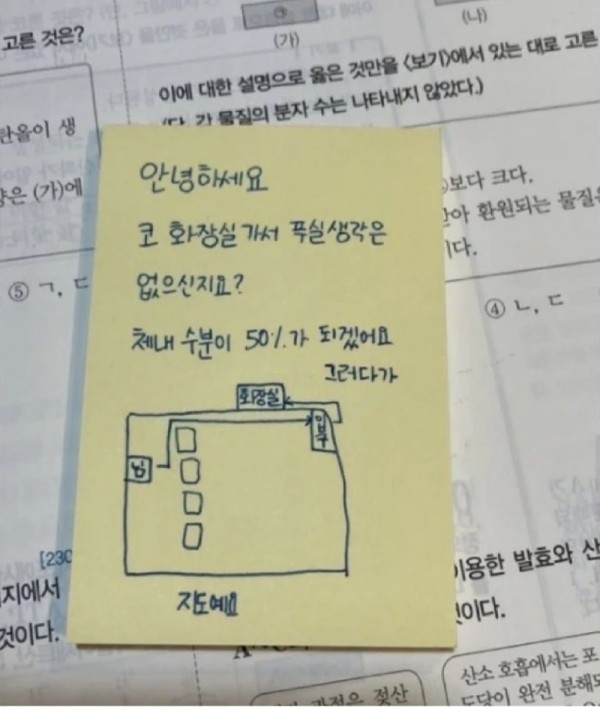 고른 것은?
(가)
(나)
이에 대한 설명으로 옳은 것만을 <보기>에서 있는 대로 고른
(단, 각 물질의 분자 수는 나타내지 않았다.)
탄올이 생
양은 (가)에
보다 크다.
아 환원되는 물질은
이다.
⑤ ㄱ, ㄷ
④ ㄴ, ㄷ
안녕하세요
코 화장실 가서 푸실생각은
없으신지요?
체내 수분이 50%가 되겠어요
그러다가
화장실
입구
님
지도예요
[230
지에서
것이다.
이용한 발효와 산
것이다.
과정은 젖산
산소 호흡에서는 포
도당이 완전 분해되